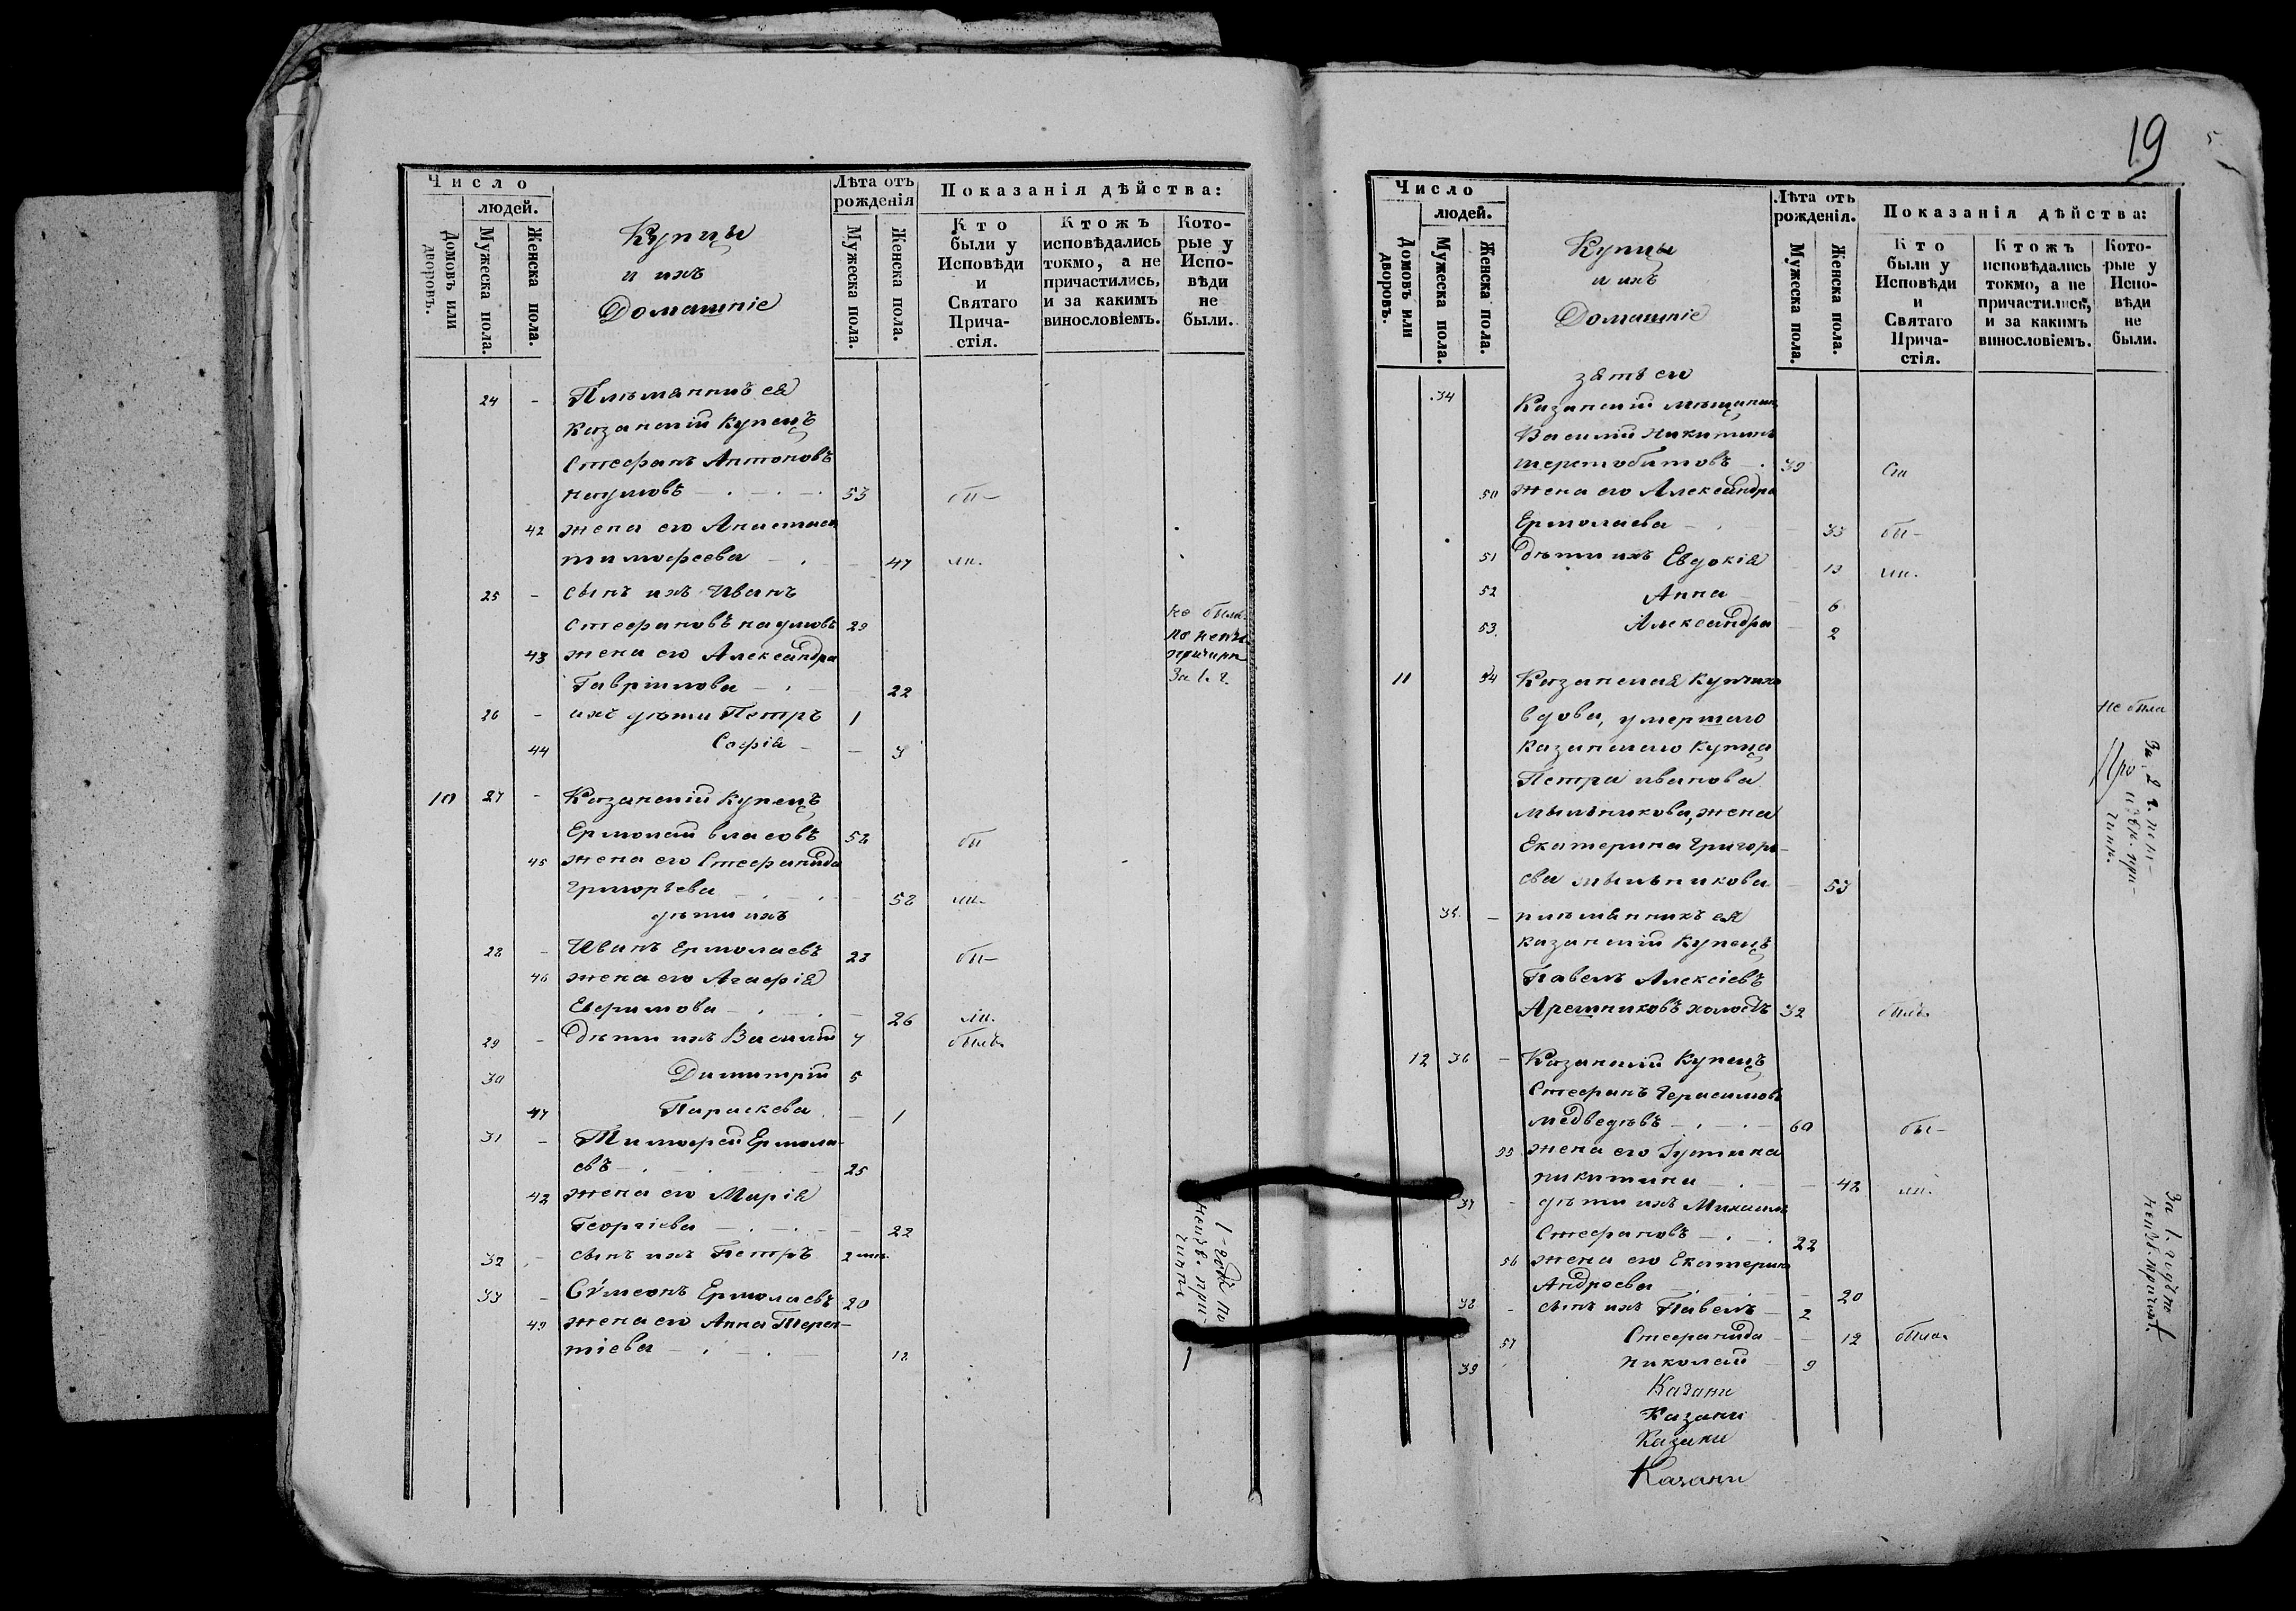 Число
людей.
Домовъ или дворовъ.
Мужеска пола.
Женска пола.
Купцы
и ихъ
Домашніе
Лѣта отъ рожденія
Мужеска пола.
Женска пола.
Показанія дѣйства:
Кто были у Исповѣди и Святаго Прича-стія.
Ктожъ исповѣдались токмо, а не причастились, и за какимъ винословіемъ.
Кото-рые у Испо-вѣди не были.
24 - Племянникъ ея
Казанскій купецъ
Стефанъ Антоновъ
Наумовъ 53 бы-
42 жена его Анастасія
Тимофеева 47 ли.
25 - сынъ ихъ Иванъ
Стефановъ Наумовъ 29
не были
по неизв.
причинѣ
за 1. г.
43 жена его Александра
Гавріилова 22
26 - ихъ дѣти Петръ 1
44 Софія 3
10 27 - Казанскій купецъ
Ермолай Власовъ 58 бы
45 жена его Стефанида
Григорьева 58 ли.
дѣти ихъ
28 - Иванъ Ермолаевъ 28 бы-
46 жена его Агафія
Евфимова 26 ли.
29 - Дѣти ихъ Василій 7 былъ.
30 Димитрій 5
47 Параскева 1
31 - Тимофей Ермола-
евъ 25
42 жена его Марія
Георгіева 22
32 - сынъ ихъ Петръ 2 мѣс.
33 - Сѵмеонъ Ермолаевъ 20
49 жена его Анна Терен-
тіева 18
1-годъ по
неизв. при-
чинѣ
19
Число
людей.
Домовъ или дворовъ.
Мужеска пола.
Женска пола.
Купцы
и ихъ
Домашніе
Лѣта отъ рожденія.
Мужеска пола.
Женска пола.
Показанія дѣйства:
Кто были у Исповѣди и Святаго Прича-стія.
Ктожъ исповѣдались токмо, а не причастились, и за какимъ винословіемъ.
Кото-рые у Испо-вѣди не были.
зять его
34 Казанскій мѣщанинъ
Василій Никитинъ
39
50 жена его Александра
Ермолаева 33 бы-
51 Дѣти ихъ Евдокія 13 ли.
52 Анна 6
53. Александра 2
11 54 Казанская купчиха
вдова, умершаго
Казанскаго купца
Петра Иванова
Мыльникова, жена
Екатерина Григорь-
ева Мыльникова 53
не была
за 2 г. по
неизв. при-
чинѣ.
35. - племянникъ ея
казанскій купецъ
Павелъ Алексіевъ
холостъ 32 былъ.
12 36 - Казанскій Купецъ
Стефанъ Герасимовъ
Медведѣвъ 60 бы-
55 жена его Іустина
Никитина 42 ли.
37 - дѣти ихъ Михаилъ
Стефановъ 22
56 жена его Екатерина
Андреева 20
38 - сынъ ихъ Павелъ 2
57 Стефанида 12 была.
39 Николай 9
за 1. годъ по
неизв. причинѣ.
Казани
Казани
Казани
Казани